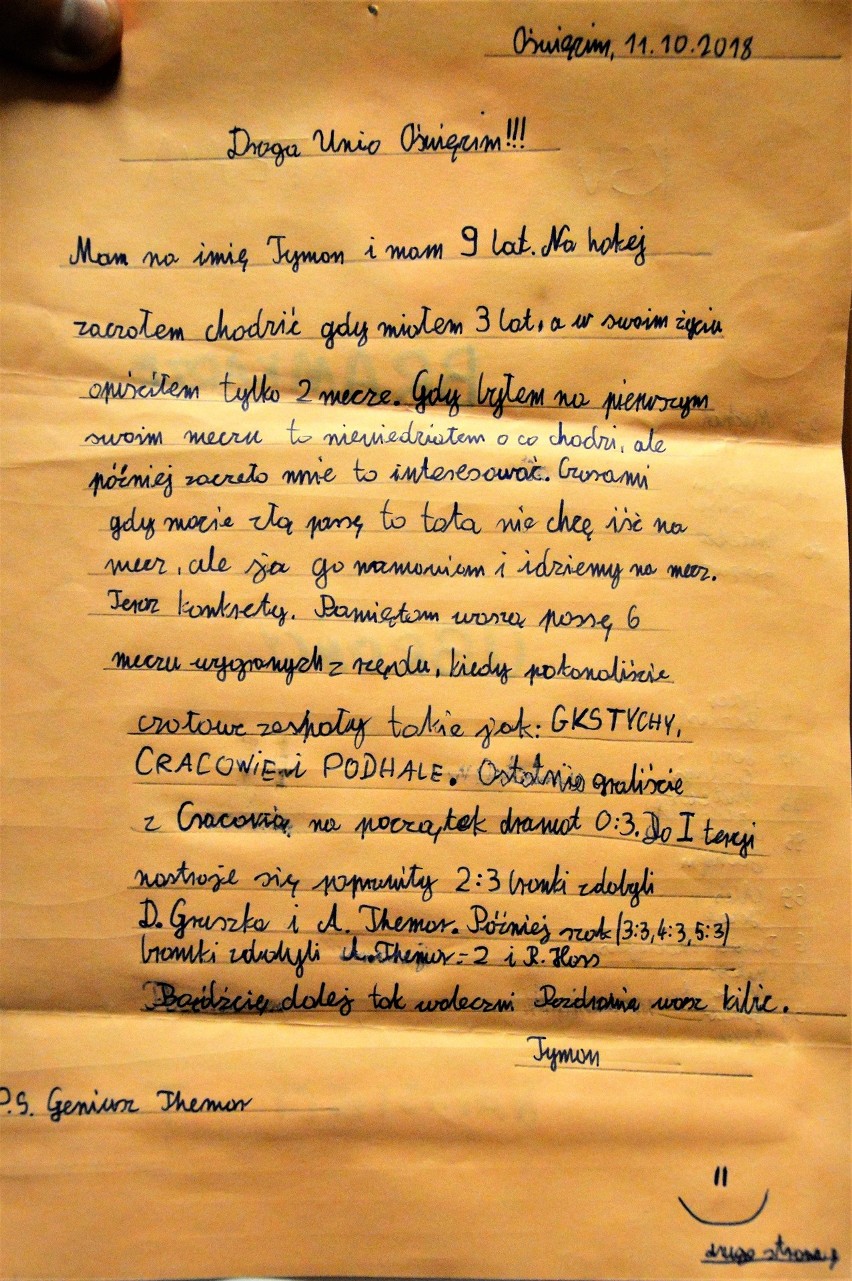 Oświęcim, 11.10.2018
Droga Unio Oświęcim!!!
Mam na imię Tymon i mam 9 lat. Na hokej
zaczołem chodzić gdy miałem 3 lat, a w swoim życiu
opiściłem tylko 2 mecze. Gdy byłem na pierwszym
swoim meczu to niewiedziałem o co chodzi, ale
później zaczeło mnie to interesować. Czasami
gdy macie złą passę to tata nie chcę iść na
mecz, ale ja go namawiam i idziemy na mecz.
Teraz konkrety. Pamiętam waszą passę 6
meczu wygranych z rzędu, kiedy pokonaliście
czołowe zespoły takie jak: GKSTYCHY,
CRACOWIE i PODHALE. Ostatnio graliście
z Cracovią na początek dramat 0:3. Do I tercji
nastroje się poprawiły 2:3 bramki zdobyli
D. Gruszka i A. Themar. Później szok (3:3, 4:3, 5:3)
bramki zdobyli A. Themar = 2 i R. Hass
Bądźcię dalej tak waleczni Pozdrawia wasz kibic.
Tymon
P.S. Geniusz Themar
druga strona